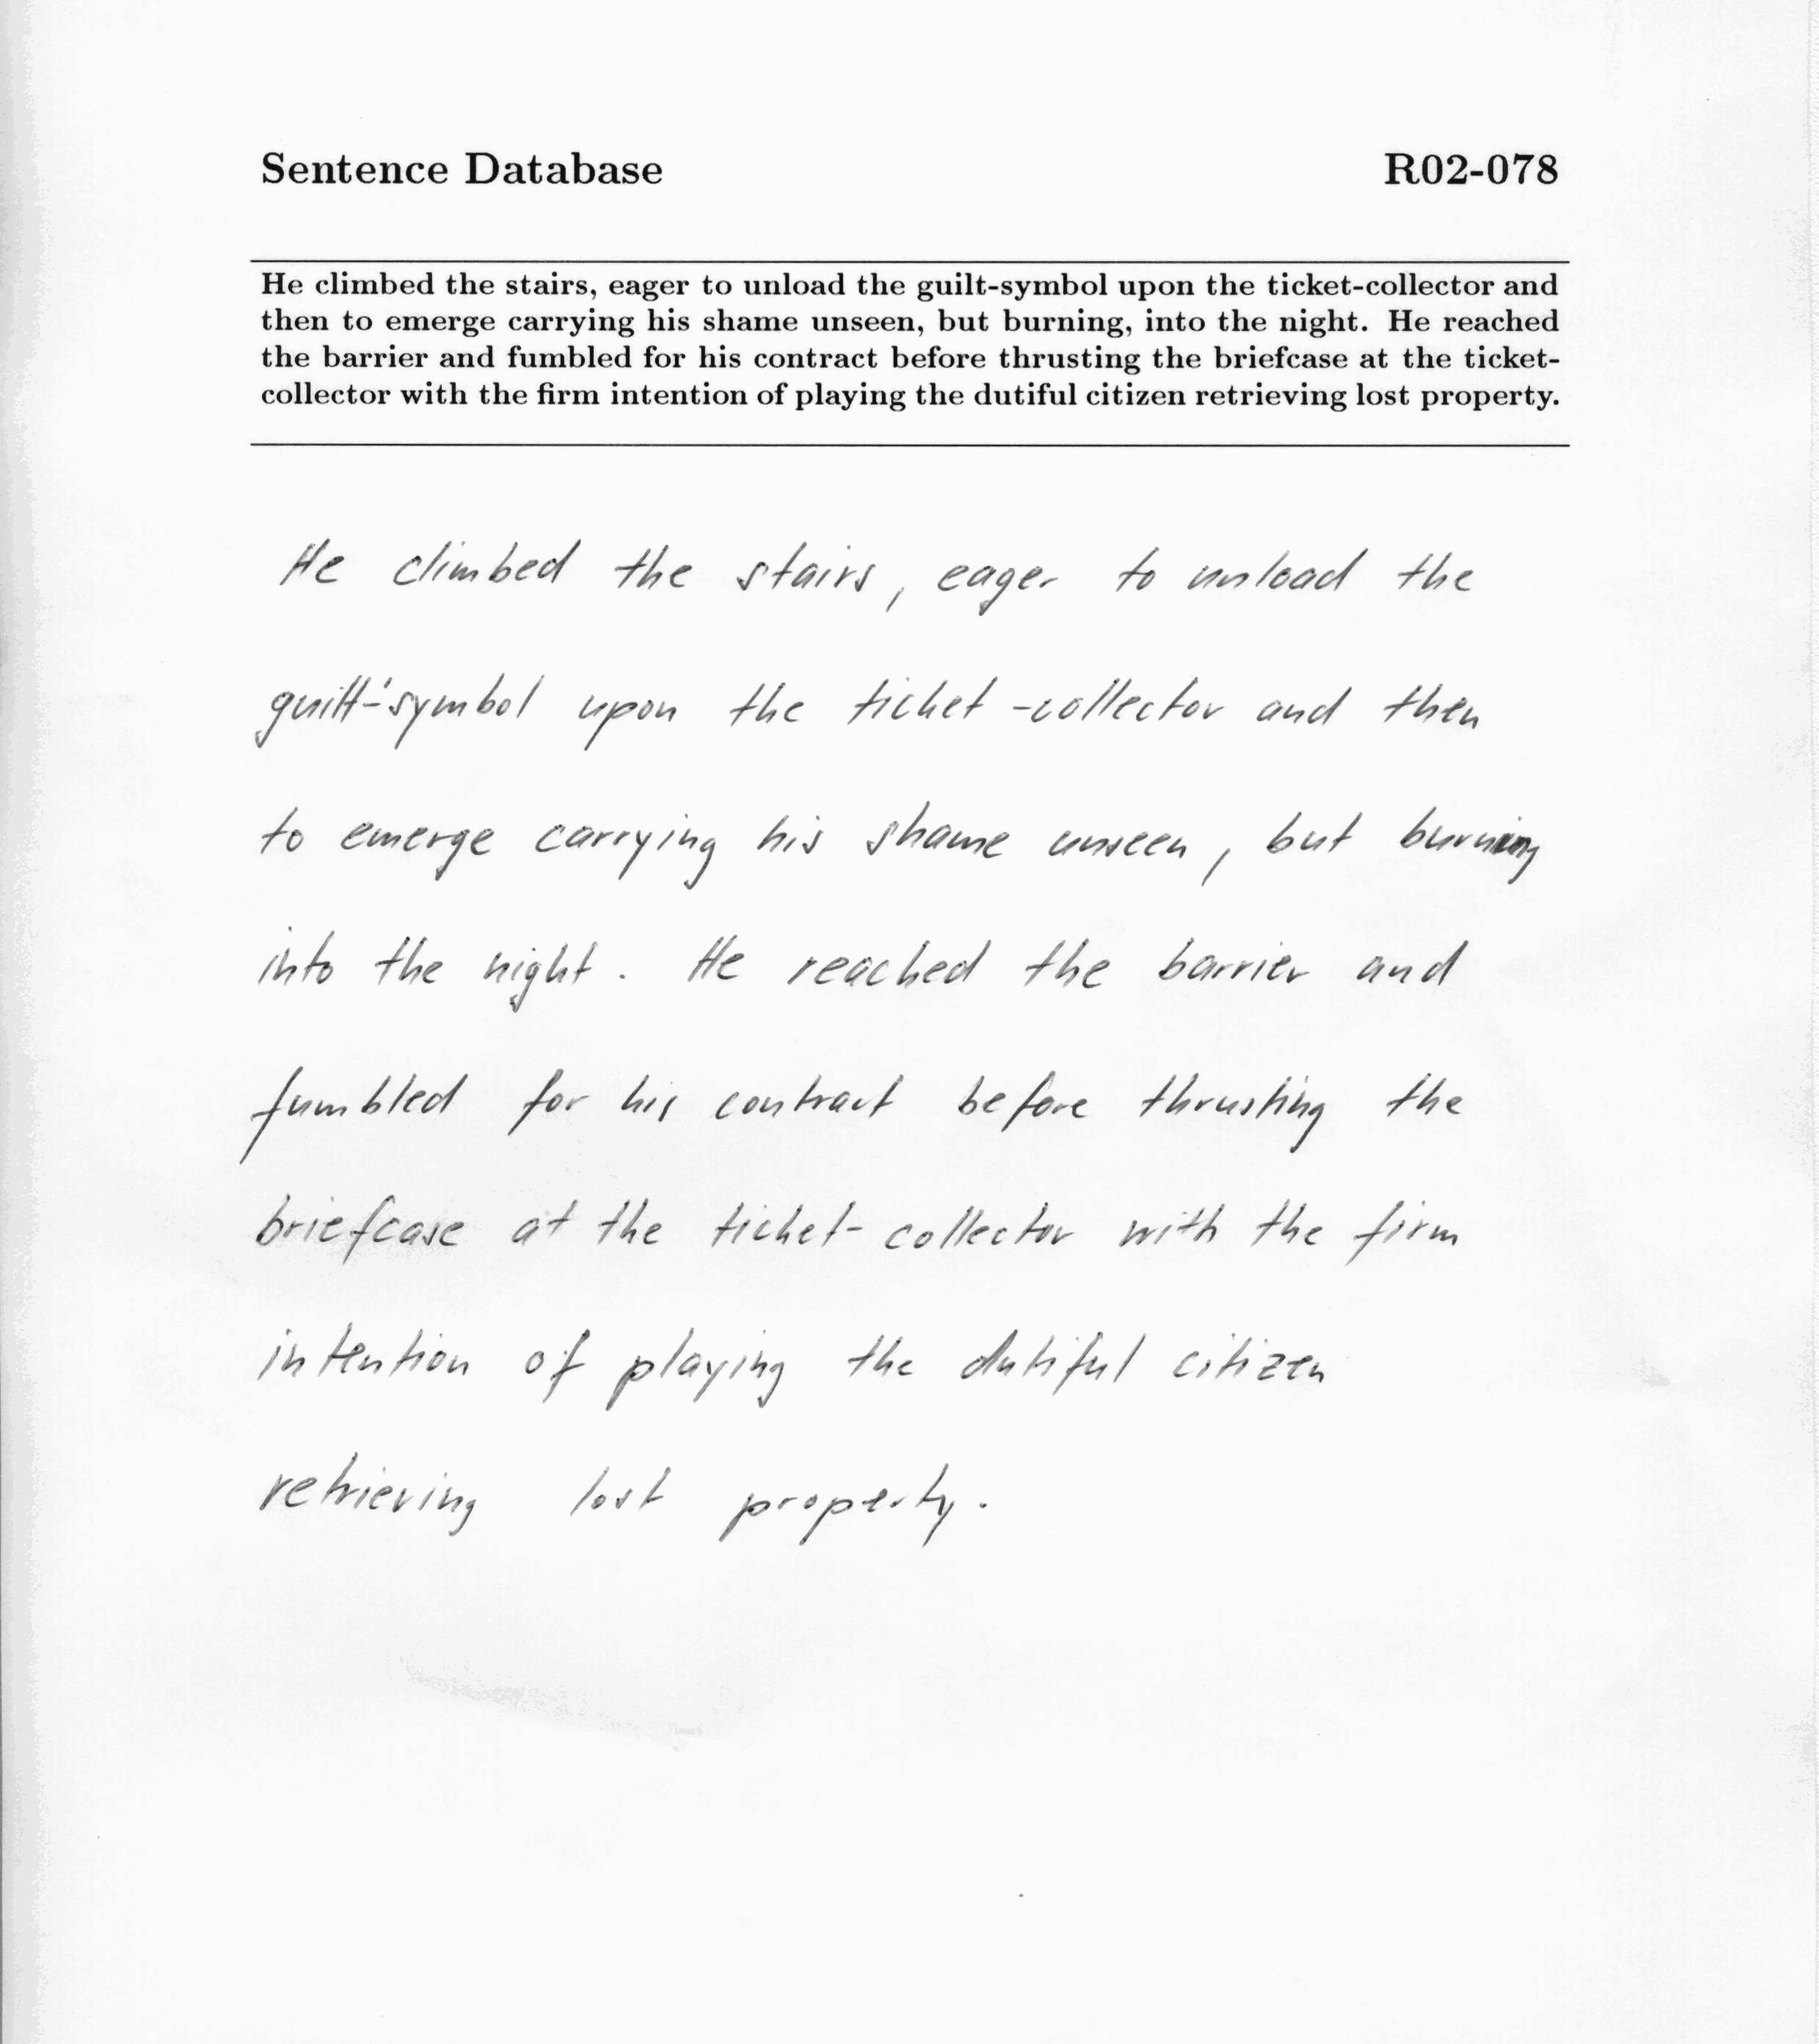 Sentence Database R02-078
He climbed the stairs, eager to unload the guilt-symbol upon the ticket-collector and
then to emerge carrying his shame unseen, but burning, into the night. He reached
the barrier and fumbled for his contract before thrusting the briefcase at the ticket-
collector with the firm intention of playing the dutiful citizen retrieving lost property.
He climbed the stairs, eager to unload the
guilt-'symbol upon the ticket -collector and then
to emerge carrying his shame unseen, but burning
into the night. He reached the barrier and
fumbled for his contract before thrusting the
briefcase at the ticket- collector with the firm
intention of playing the dutiful citizen
retrieving lost property.